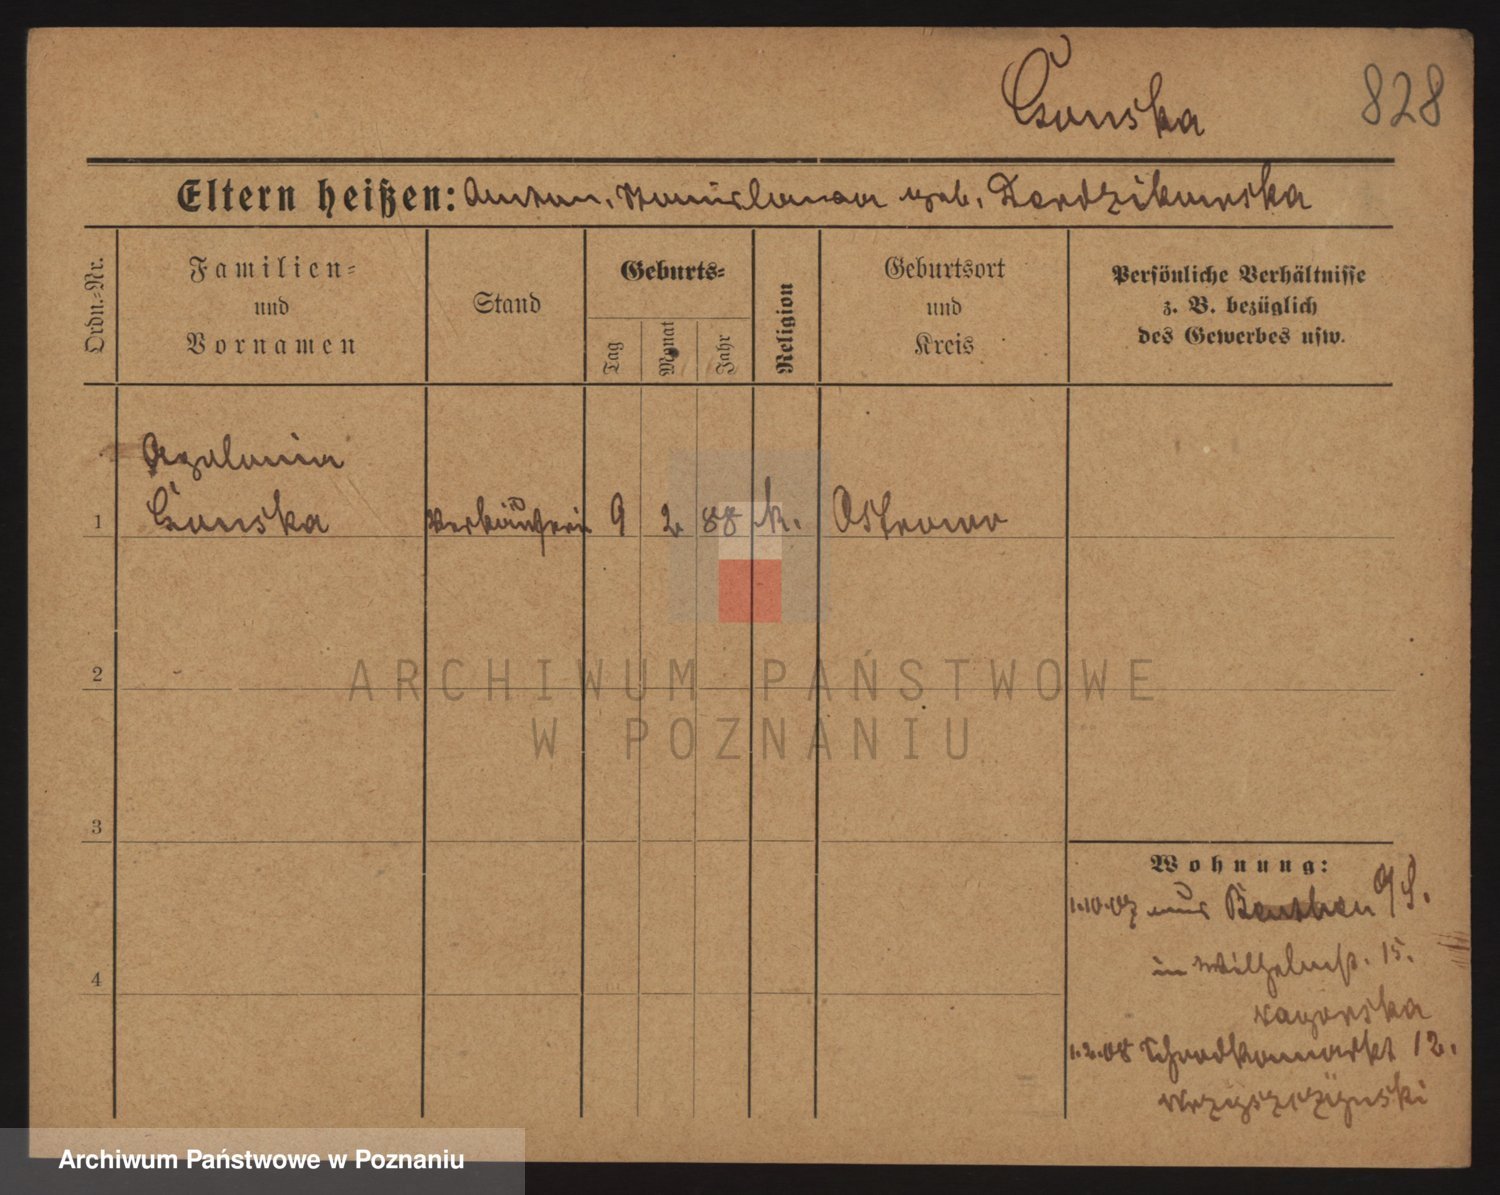 Czonska 828
Eltern heißen: Anton, Stanislawa geb. Derdzikowska
Ordn.-Nr.
Familien-
und
Vornamen
Stand
Geburts-
Tag
Monat
Jahr
Religion
Geburtsort
und
Kreis
Persönliche Verhältnisse
z. B. bezüglich
des Gewerbes usw.
Apolonia
1 Czonska Verkäuferin 9 2 88 k. Ostrowo
2
3
4
Wohnung:
1.10.07 aus Beuthen O/S.
in Wilhelmst. 15.
1.2.08 Schrodkamarkt 12.
ARCHIWUM PAŃSTWOWE
W POZNANIU
Archiwum Państwowe w Poznaniu